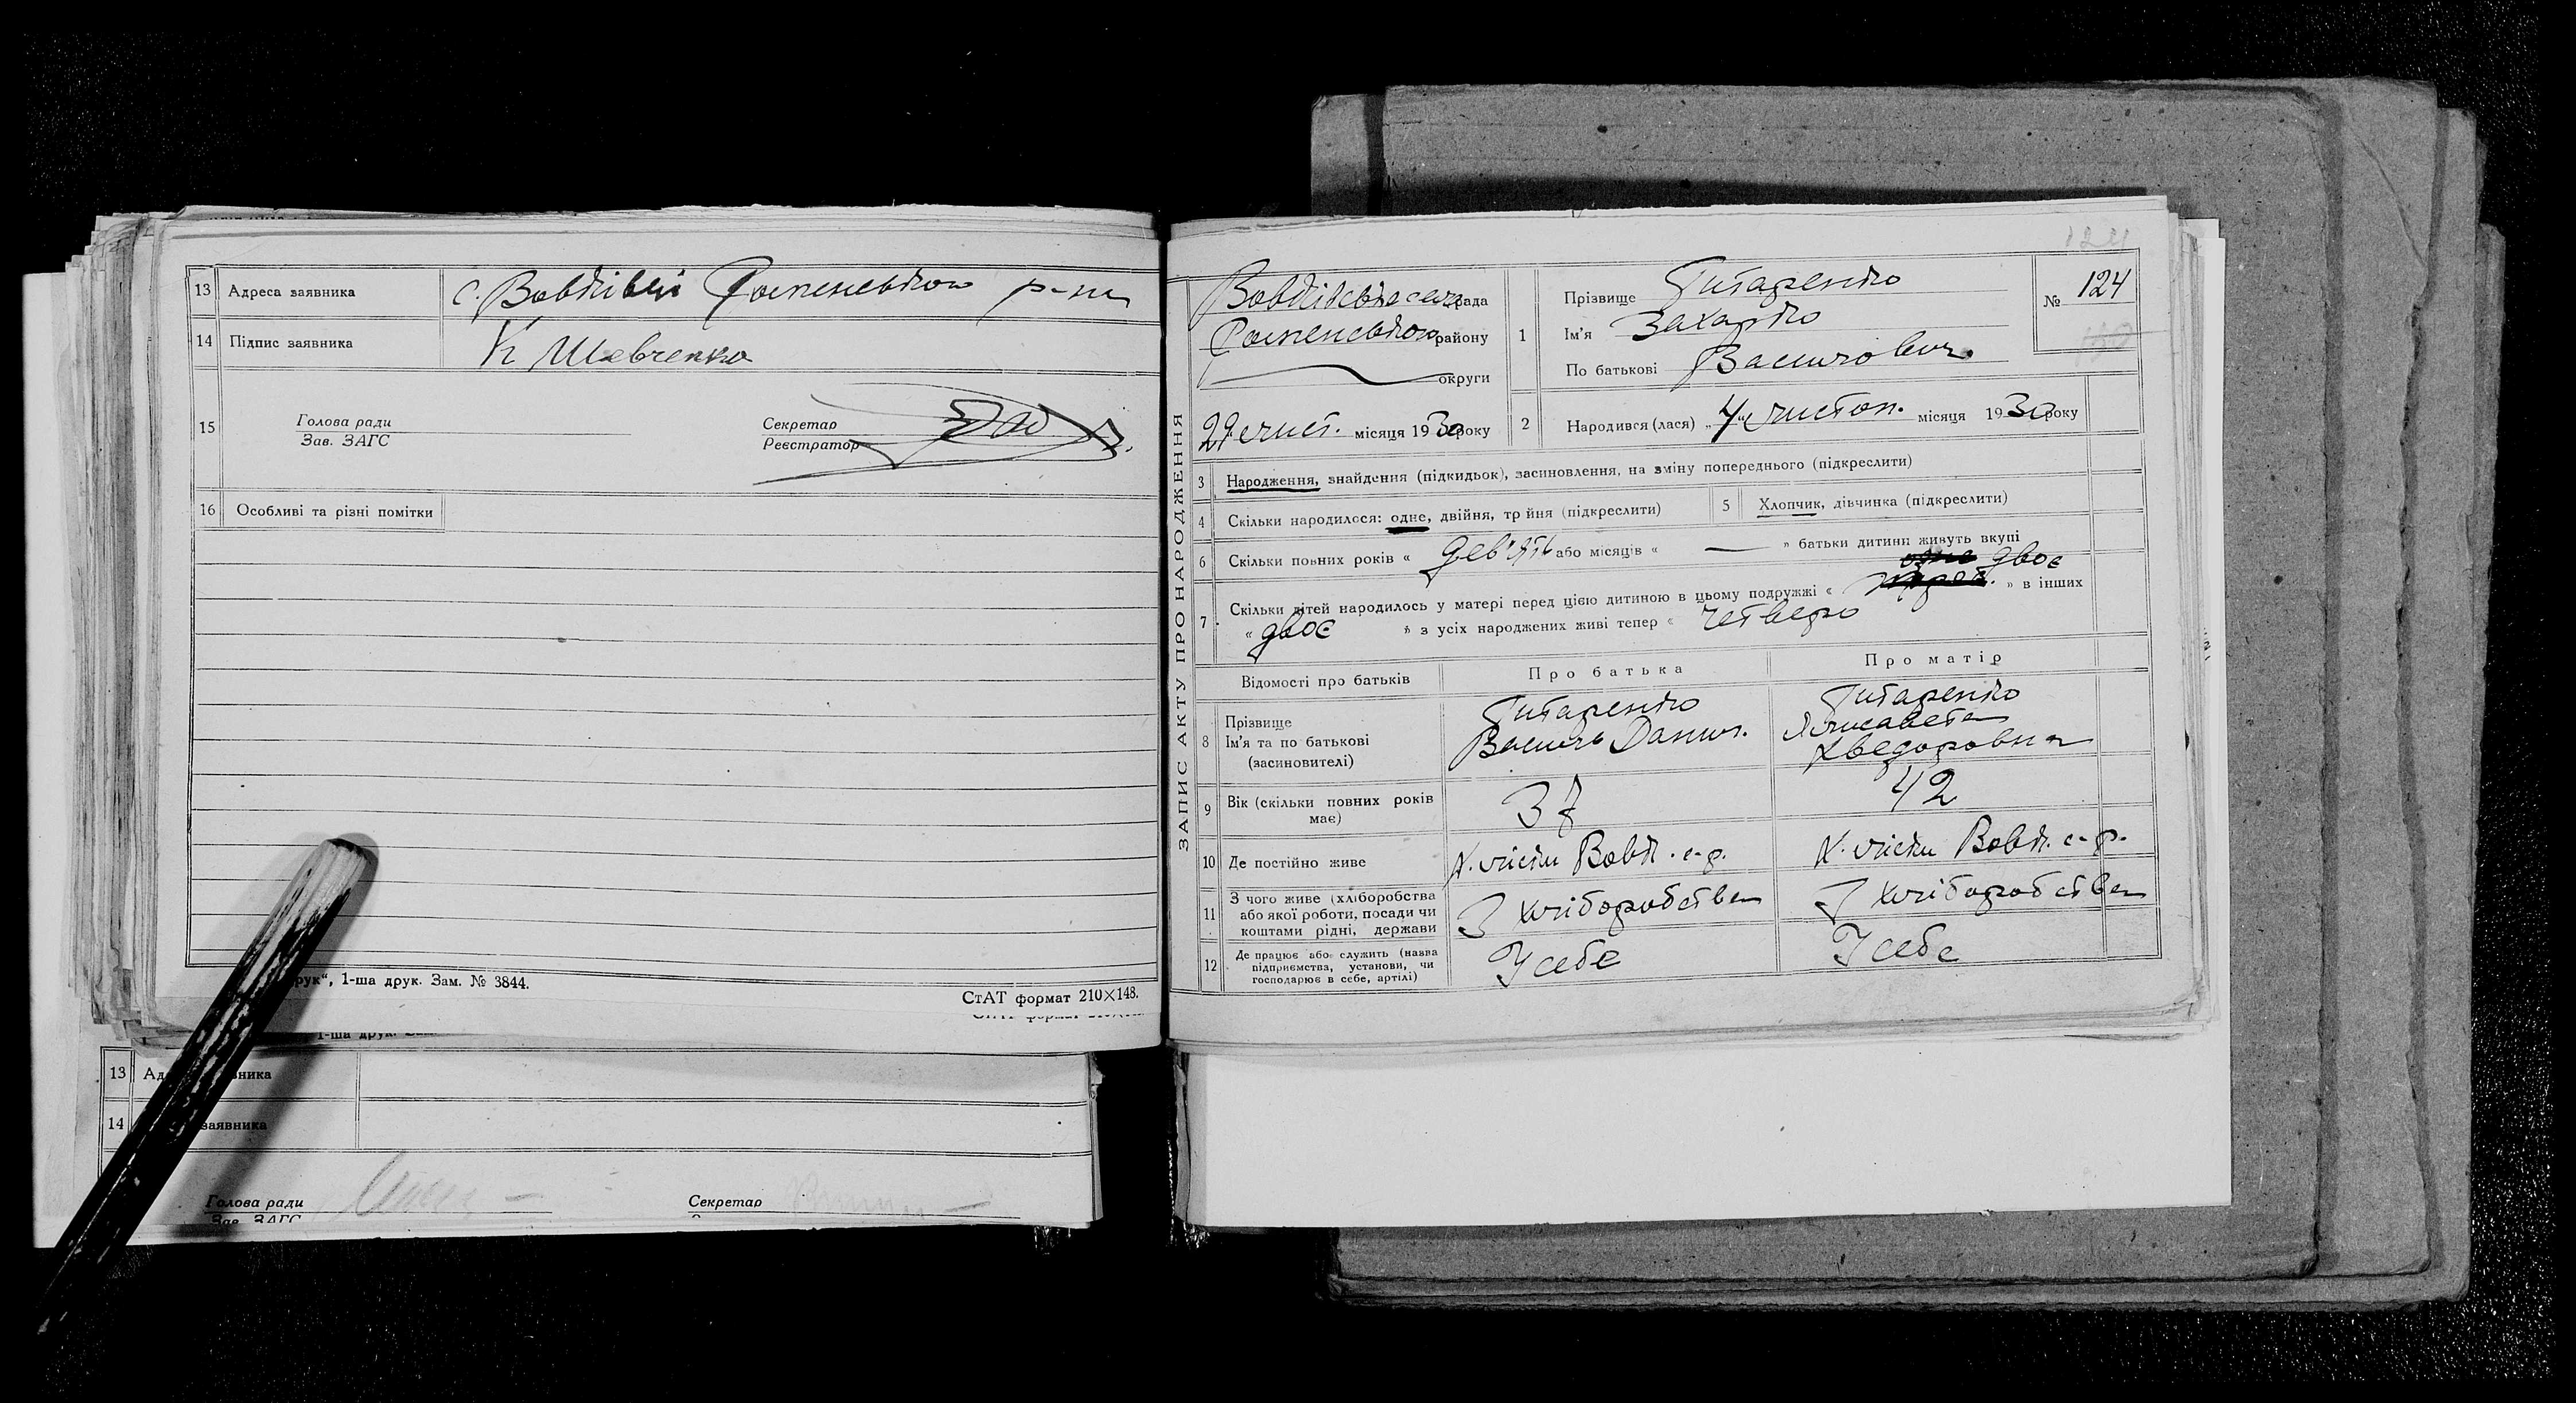 13 Адреса заявника с. Вовківці Роменського р-ну
14 Підпис заявника К Шевченко
15 Голова ради
Зав. ЗАГС
Секретар
Реєстратор
16 Особливі та різні помітки
рук“, 1-ша друк. Зам. № 3844.
СтАТ формат 210×148.
13
14 заявника
Голова ради
Зав. ЗАГС
Секретар
ЗАПИС АКТУ ПРО НАРОДЖЕННЯ
124
рада
Роменського району
округи
29 лист. місяця 1930 року
1 Прізвище Титаренко
Ім'я Захарко
По батькові Васильович
№ 124
2 Народився (лася) „4“ листоп. місяця 1930 року
3 Народження, знайдення (підкидьок), засиновлення, на зміну попереднього (підкреслити)
4 Скільки народилося: одне, двійня, трійня (підкреслити)
5 Хлопчик, дівчинка (підкреслити)
6 Скільки повних років « дев'ять або місяців « — » батьки дитини живуть вкупі
двоє
7 Скільки дітей народилось у матері перед цією дитиною в цьому подружжі « » в інших
« двоє » з усіх народжених живі тепер « четверо
Відомості про батьків
Про батька
Про матір
8 Прізвище
Ім'я та по батькові
(засиновителі)
Титаренко
Василь Данил.
Титаренко
Лисавета
Хведоровна
9 Вік (скільки повних років має)
37
42
10 Де постійно живе
Вовк. с-р.
Вовк. с-р.
11 З чого живе (хліборобства
або якої роботи, посади чи
коштами рідні, держави
З хліборобства
З хліборобства
12 Де працює або служить (назва
підприємства, установи, чи
господарює в себе, артілі)
У себе
У себе